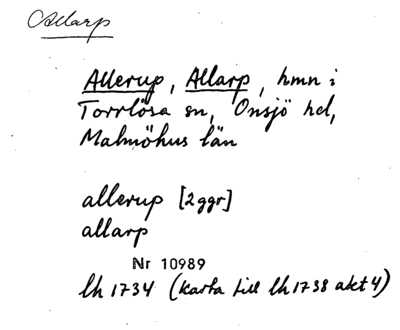 Allarp
Allerup, Allarp, hmn i
Torrlösa sn, Onsjö hd,
Malmöhus län
allerup [2ggr]
allarp
Nr 10989
lh 1734 (karta till lh 1738 akt 4)